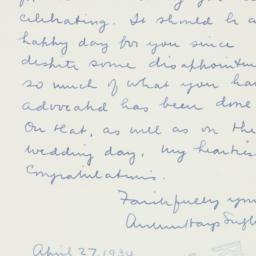 celebrating. It should be a
happy day for you since
despite some disappointm
so much of what you ha
advocated has been done
On that, as well as on the
wedding day, my hearties
Congratulations.
Faithfully you
Arthur Hays Sulz
April 27, 1934